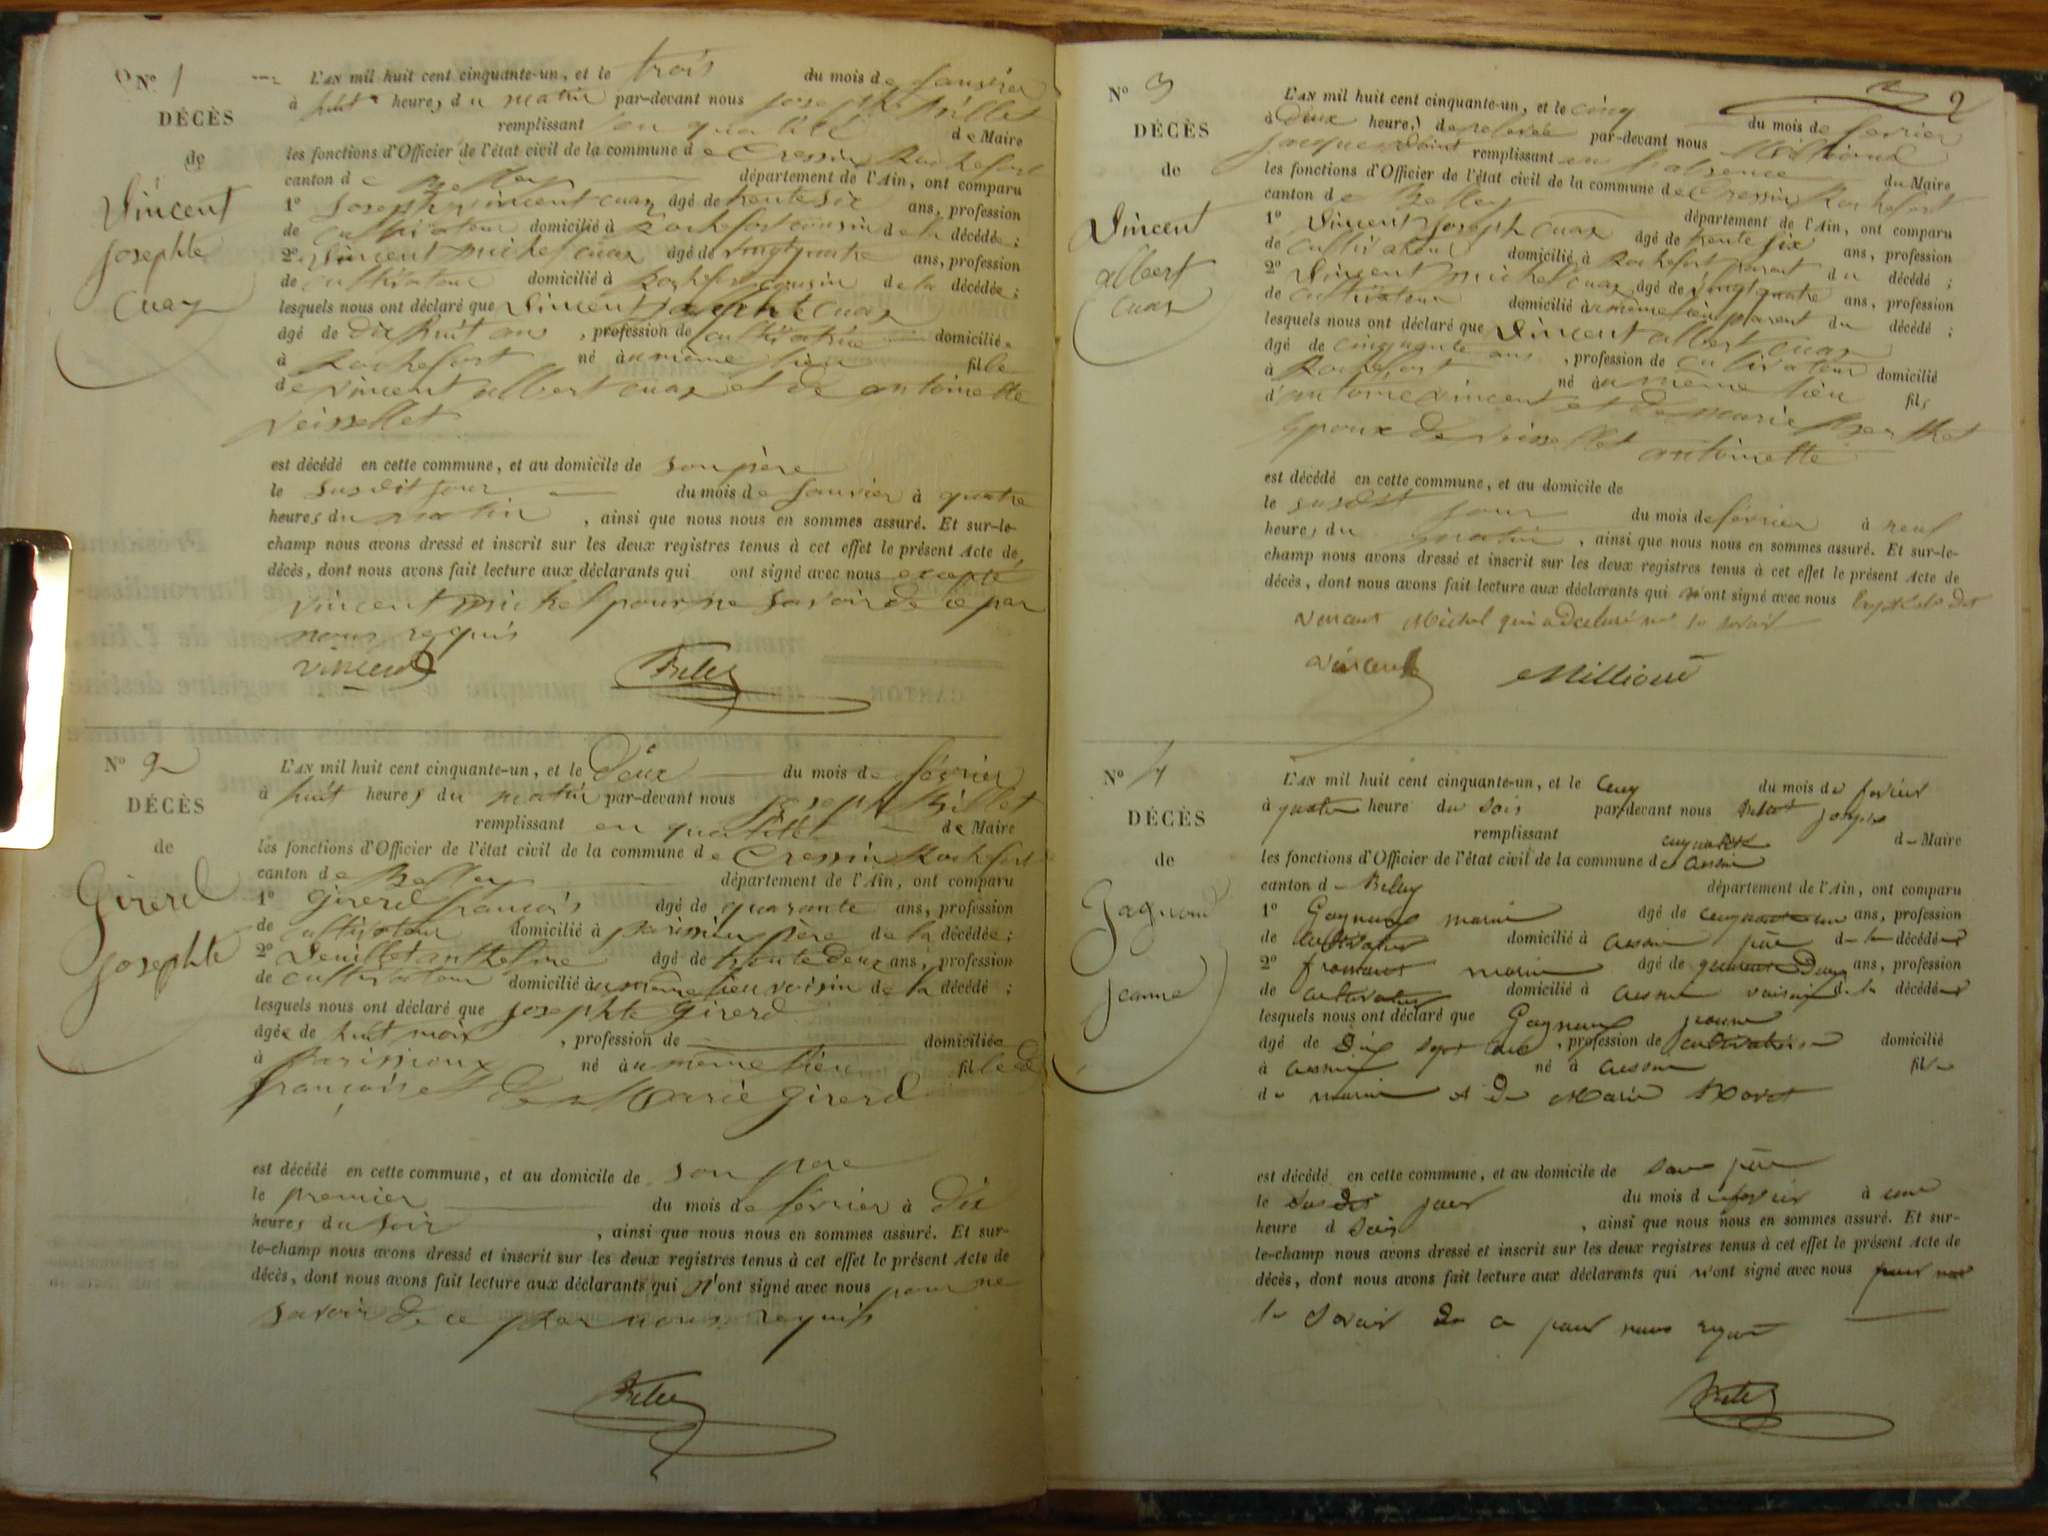 No 1
DÉCÈS
de
Vincent
Josephte
Cuaz
L'AN mil huit cent cinquante-un, et le trois du mois de Janvier
à huit heures du matin par-devant nous Joseph Billet
remplissant en qualité de Maire
les fonctions d'Officier de l'état civil de la commune de Cressin Rochefort
canton de Belley département de l'Ain, ont comparu
1o Joseph Vincent Cuaz âgé de trente six ans, profession
de cultivateur domicilié à Rochefort cousin de la décédée ;
2o Vincent michel cuaz âgé de vingt quatre ans, profession
de cultivateur domicilié à Rochefort cousin de la décédée ;
lesquels nous ont déclaré que Vincent Josephte Cuaz
âgé de dix huit ans, profession de cultivatrice domiciliée
à Rochefort né au même lieu fille
de vincent albert cuaz et de antoinette
Veissellet
est décédé en cette commune, et au domicile de son père
le susdit jour du mois de Janvier à quatre
heures du matin, ainsi que nous nous en sommes assuré. Et sur-le-
champ nous avons dressé et inscrit sur les deux registres tenus à cet effet le présent Acte de
décès, dont nous avons fait lecture aux déclarants qui ont signé avec nous excepté
vincent michel pour ne savoir de ce par
nous requis
Vincent Billet
No 2
DÉCÈS
de
Girerd
Josephte
L'AN mil huit cent cinquante-un, et le deux du mois de février
à huit heures du matin par-devant nous Joseph Billet
remplissant en qualité de Maire
les fonctions d'Officier de l'état civil de la commune de Cressin Rochefort
canton de Belley département de l'Ain, ont comparu
1o Girerd françois âgé de quarante ans, profession
de cultivateur domicilié à parissieu père de la décédée ;
2o anthelme âgé de trente deux ans, profession
de cultivateur domicilié au même lieu voisin de la décédé ;
lesquels nous ont déclaré que Josephte Girerd
âgée de huit mois, profession de domiciliée
à né au même lieu fille de
françois et de Marie Girerd
est décédé en cette commune, et au domicile de son père
le premier du mois de février à dix
heures du soir, ainsi que nous nous en sommes assuré. Et sur-
le-champ nous avons dressé et inscrit sur les deux registres tenus à cet effet le présent Acte de
décès, dont nous avons fait lecture aux déclarants qui n'ont signé avec nous pour ne
savoir de ce par nous requis
Billet
2
No 3
DÉCÈS
de
Vincent
albert
cuaz
L'AN mil huit cent cinquante-un, et le cinq du mois de fevrier
à deux heures de relevée par-devant nous Millioud
jacques adjoint remplissant en l'absence du Maire
les fonctions d'Officier de l'état civil de la commune de Cressin Rochefort
canton de Belley département de l'Ain, ont comparu
1o Vincent Joseph cuaz âgé de trente six ans, profession
de cultivateur domicilié à Rochefort parent du décédé ;
2o Vincent michel cuaz âgé de vingt quatre ans, profession
de cultivateur domicilié au même lieu parent du décédé ;
lesquels nous ont déclaré que Vincent albert cuaz
âgé de cinquante ans, profession de cultivateur domicilié
à Rochefort né au même lieu fils
d'antoine vincent et de marie
Epoux de Veissellet antoinette
est décédé en cette commune, et au domicile de
le susdit jour du mois de février à neuf
heures du matin, ainsi que nous nous en sommes assuré. Et sur-le-
champ nous avons dressé et inscrit sur les deux registres tenus à cet effet le présent Acte de
décès, dont nous avons fait lecture aux déclarants qui ont signé avec nous
Vincent Michel qui a declaré ne le savoir
Vincent Millioud
No 4
DÉCÈS
de
Gagneux
jeanne
L'AN mil huit cent cinquante-un, et le cinq du mois de fevrier
à quatre heure du soir par devant nous Billet joseph
remplissant en qualité de Maire
les fonctions d'Officier de l'état civil de la commune de Cressin
canton de Belley département de l'Ain, ont comparu
1o Gagneux marin âgé de ans, profession
de cultivateur domicilié à Cressin père de la décédée
2o marin âgé de quarante Deux ans, profession
de cultivateur domicilié à Cressin voisin de la décédée
lesquels nous ont déclaré que Gagneux jeanne
âgé de Dix sept ans, profession de cultivatrice domicilié
à Cressin né à Cressin fille
de marin et de Marie
est décédé en cette commune, et au domicile de son père
le susdit jour du mois de fevrier à une
heure d soir, ainsi que nous nous en sommes assuré. Et sur-
le-champ nous avons dressé et inscrit sur les deux registres tenus à cet effet le présent Acte de
décès, dont nous avons fait lecture aux déclarants qui n'ont signé avec nous pour ne
le savoir de ce par nous requis
Billet